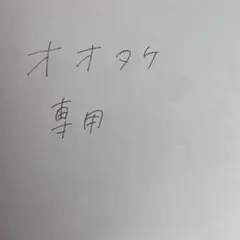 オオタケ
専用